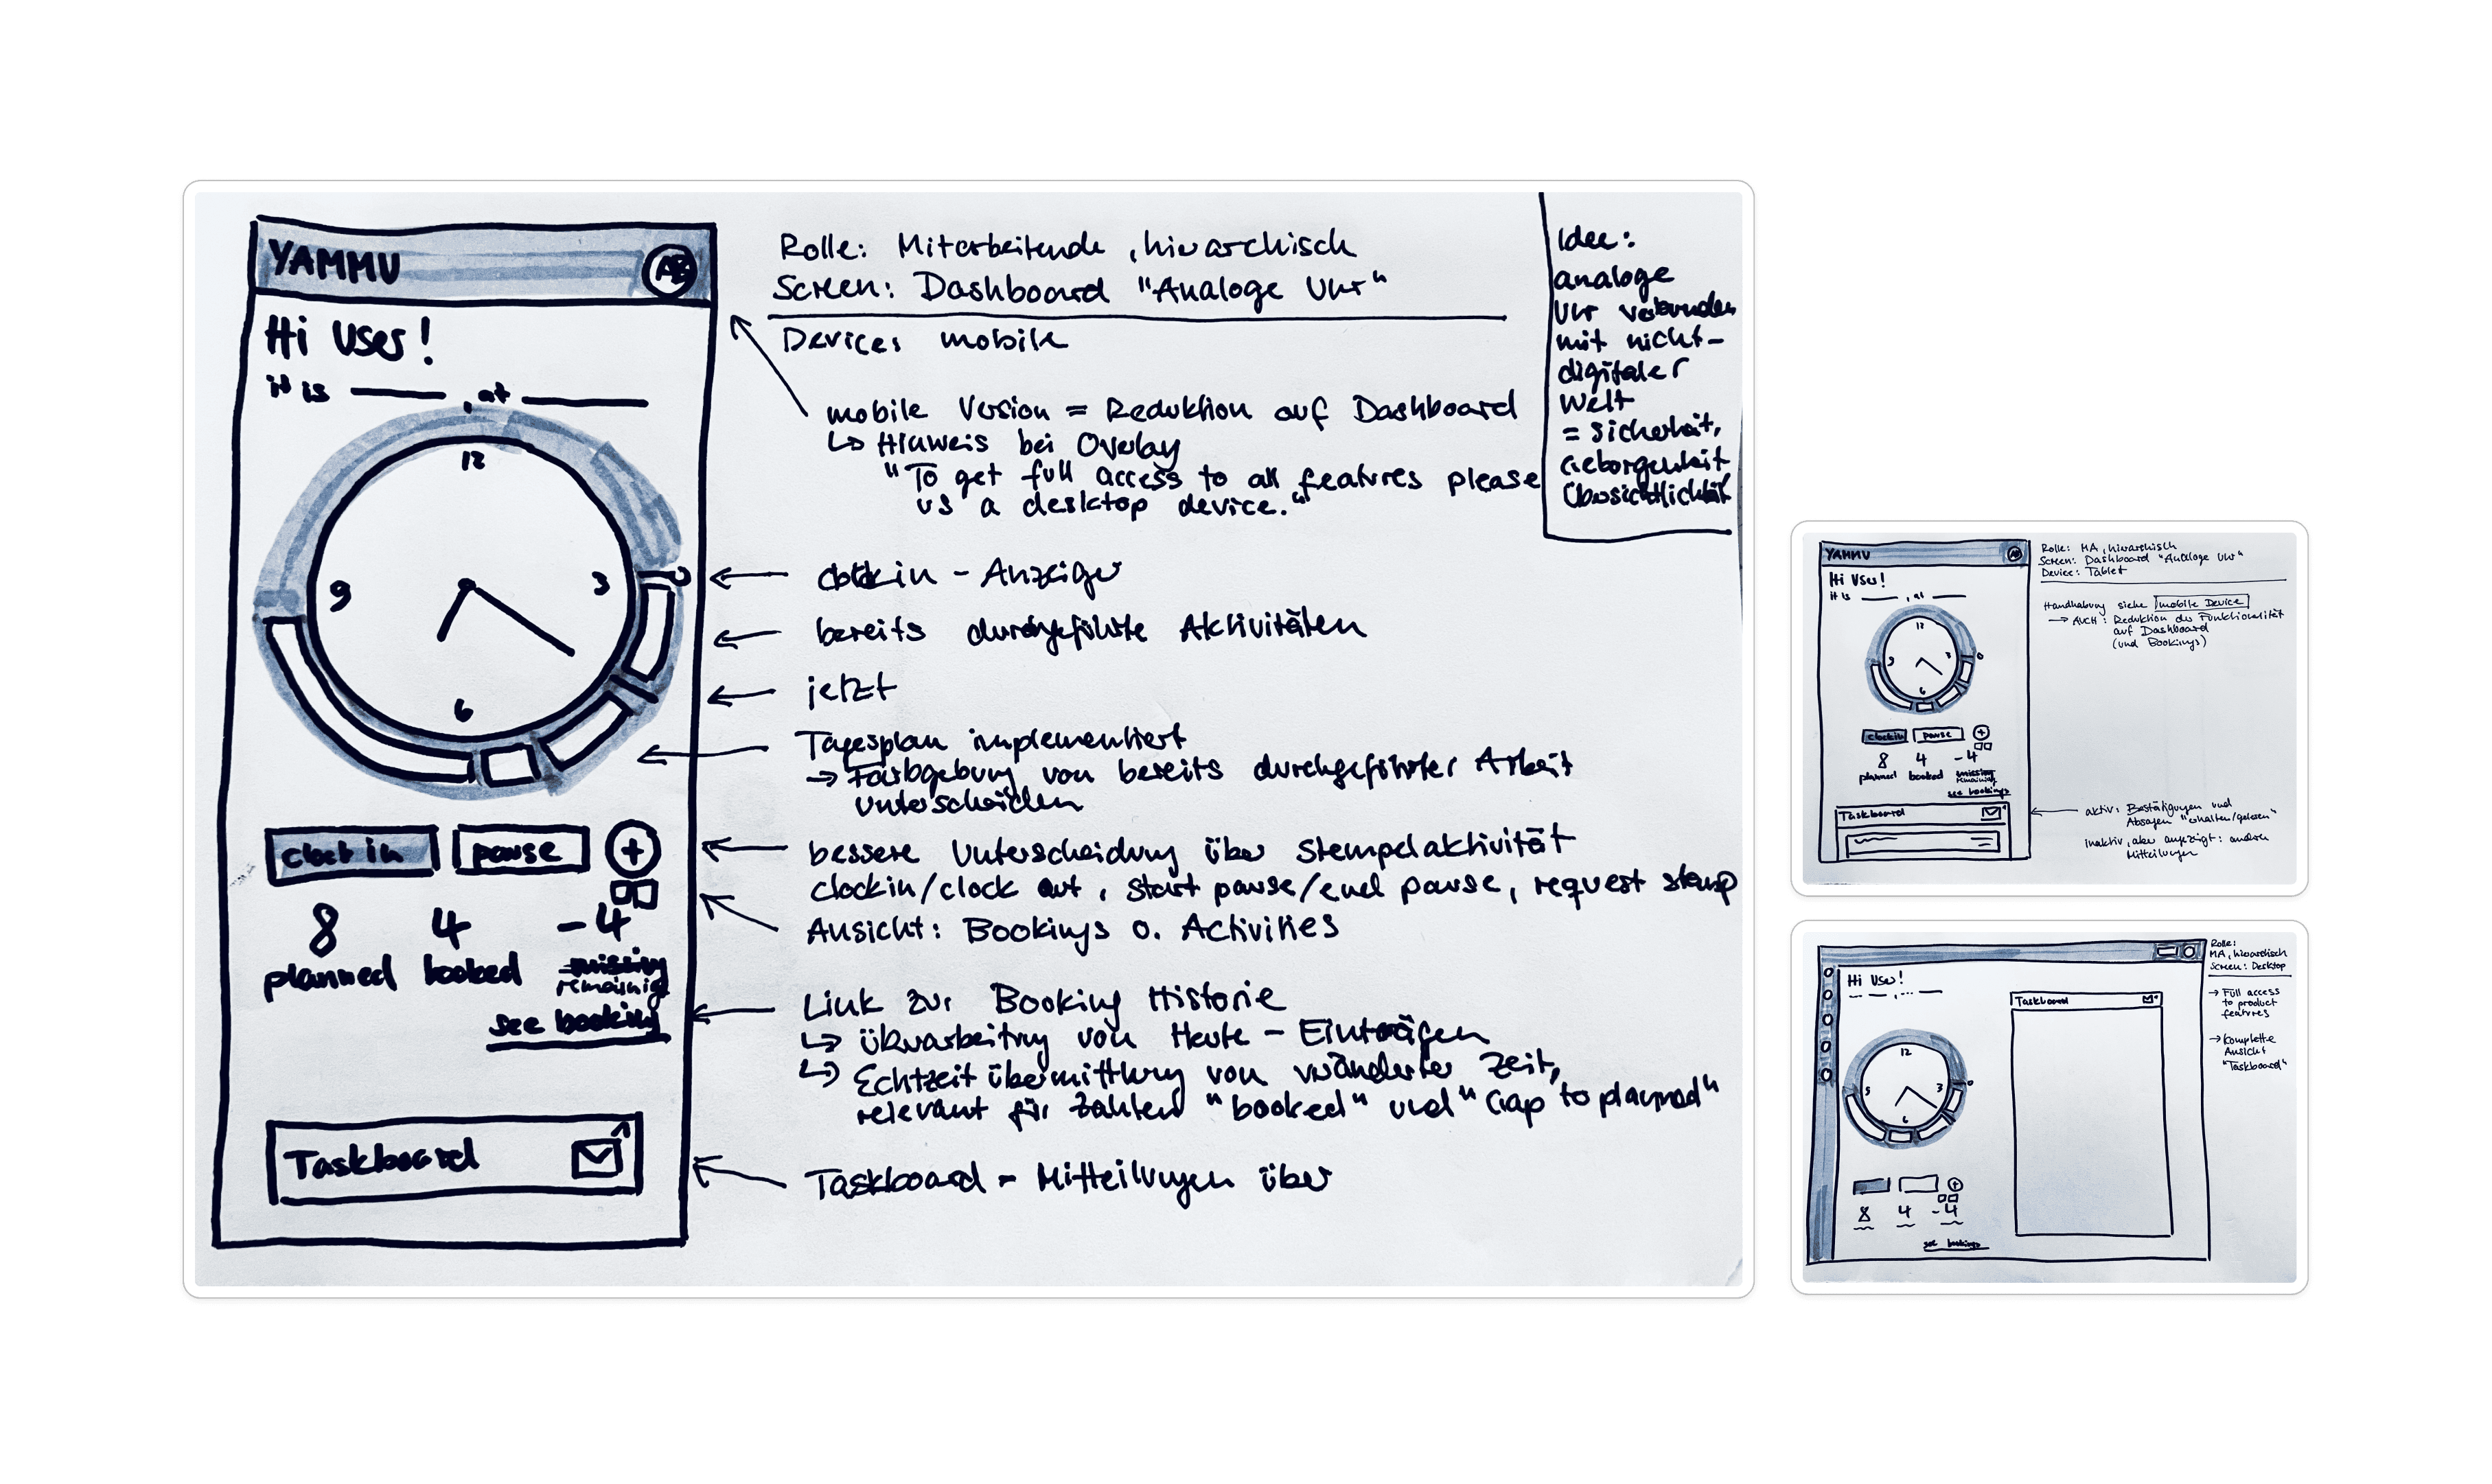 YAMMU
AB
Hi User!
it is ____, at ____
12
3
6
9
clock in
pause
+
8 4 -4
planned booked missing
remaining
see booking
Taskboard
Rolle: Mitarbeitende, hierarchisch
Screen: Dashboard "Analoge Uhr"
Device: mobile
mobile Version = Reduktion auf Dashboard
↳ Hinweis bei Overlay
"To get full access to all features please
us a desktop device."
clockin - Anzeiger
bereits durchgeführte Aktivitäten
jetzt
Tagesplan implementiert
→ Farbgebung von bereits durchgeführter Arbeit
unterscheiden
bessere Unterscheidung über Stempelaktivität
clockin/clock out, start pause/end pause, request stamp
Ansicht: Bookings o. Activities
Link zur Booking Historie
↳ Überarbeitung von Heute - Einträgen
↳ Echtzeitübermittlung von veränderter Zeit,
relevant für Zahlen "booked" und "Gap to planned"
Taskboard = Mitteilungen über
Idee:
analoge
Uhr verbunden
mit nicht-
digitaler
Welt
= Sicherheit,
Geborgenheit
Übersichtlichkeit
YAMMU
AB
Hi User!
it is ____, at ____
12
3
6
9
clockin
pause
+
8 4 -4
planned booked missing
remaining
see bookings
Taskboard
Rolle: MA, hierarchisch
Screen: Dashboard "Analoge Uhr"
Device: Tablet
Handhabung siehe mobile Device
→ AUCH: Reduktion der Funktionalität
auf Dashboard
(und Bookings)
aktiv: Bestätigungen und
Absagen "erhalten/gelesen"
Inaktiv, aber angezeigt: andere
Mitteilungen
Hi User!
12
3
6
9
+
8 4 -4
see bookings
Taskboard
Rolle:
MA, hierarchisch
Screen: Desktop
→ Full access
to product
features
→ Komplette
Ansicht
"Taskboard"